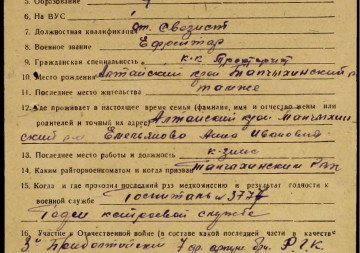 5. Образование 7
6. На ВУС
7. Должностная квалификация ст. связист
8. Военное звание Ефрейтор
9. Гражданская специальность к-к Тракторист
10. Место рождения Алтайский край Топчихинский р.
11. Последнее место жительства также
12. Где проживает в настоящее время семья (фамилия, имя и отчество жены или
родителей и точный их адрес) Алтайский край Топчихин-
ский р-н Емельянова Анна Ивановна
13. Последнее место работы и должность к-з
14. Каким райгорвоенкоматом и когда призван Топчихинский РВК
15. Когда и где проходил последний раз медкомиссию и результат годности к
военной службе Госпиталь № 3776
Годен к строевой службе
16. Участие в Отечественной войне (в составе какой последней части в качестве
3й Прибалтийский 7 бр. Р.Г.К.